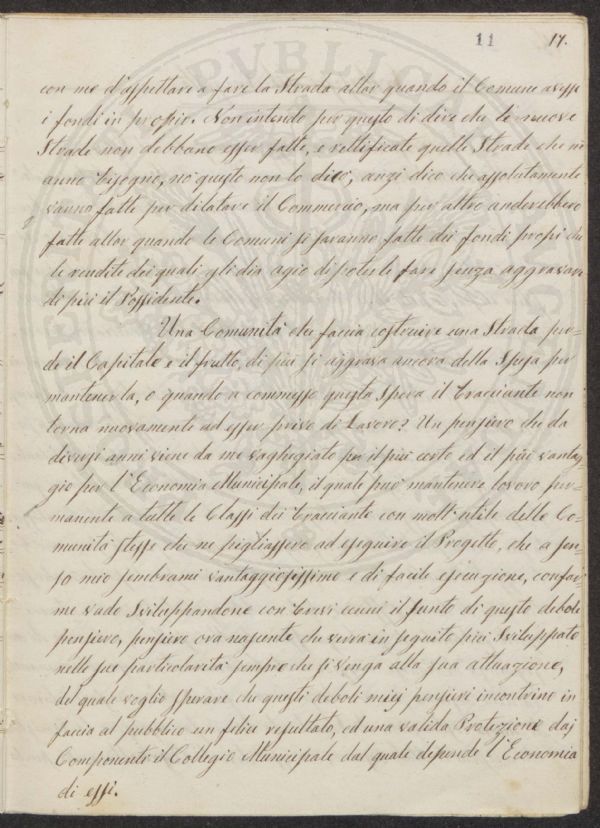 11 17.
con me d'aspettare a fare la Strada allor quando il Comune avesse
i fondi in propio. Non intendo per questo di dire che le nuove
Strade non debbano esser fatte, e rettificate quelle Strade che n'
anno bisogno, nò questo non lo dico, anzi dico che assolutamente
vanno fatte per dilatare il Commercio, ma per altro anderebbero
fatte allor quando le Comuni si saranno fatte dei fondi propri che
le rendite dei quali gli dia agio di poterle fare senza aggravare
di più il Possidente.
Una Comunità che faccia costruire una Strada per-
de il Capitale e il frutto, di più si aggrava ancora della Spesa per
mantenerla, e quando a commesso questa Spesa il bracciante non
torna nuovamente ad esser privo di Lavoro? Un pensiero che da
diversi anni viene da me vagheggiato per il più certo ed il più vantag-
gio per l'Economia Municipale, il quale può mantenere lavoro per-
manente a tutte le Classi dei braccianti con molt'utile delle Co-
munità stesse che ne pigliassero ad eseguire il Progetto, che a sen-
so mio sembrami vantaggiosissimo e di facile esecuzione, confor-
me vado Sviluppandone con brevi cenni il sunto di questo debole
pensiero, pensiero ora nascente che verrà in seguito più Sviluppato
nelle sue particolarità sempre che si venga alla sua attuazione,
del quale voglio sperare che questi deboli miei pensieri incontrino in
faccia al pubblico un felice resultato, ed una valida Protezione daj
Componenti il Collegio Municipale dal quale dipende l'Economia
di essi.